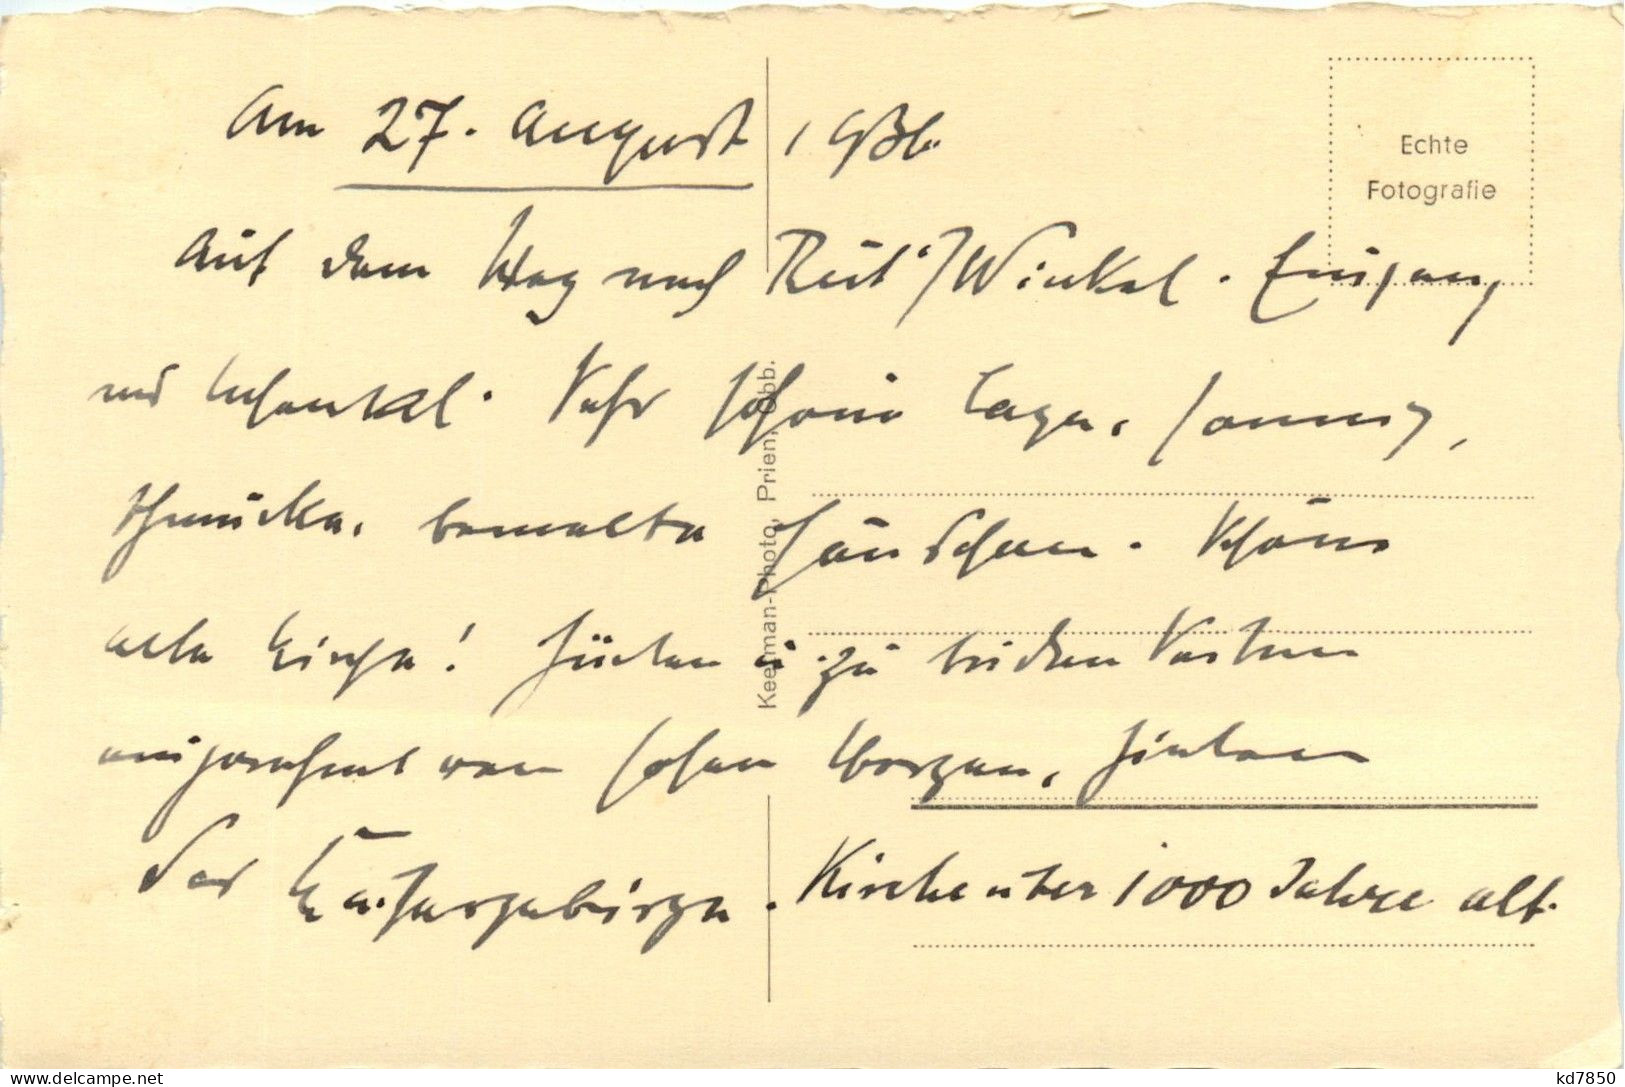 Am 27. August 1936.
Echte
Fotografie
Auf dem Weg nach Reit i/Winkel.
und Sehr schöne Lage, sonnig,
schmucke, bemalte Häuschen. Schöne
alte Kirche! Hinten u. zu beiden Seiten
von hohen Bergen, hinten
das Kaisergebirge. Kirche über 1000 Jahre alt.
Keerman-Photo, Prien, Obb.
kd7850